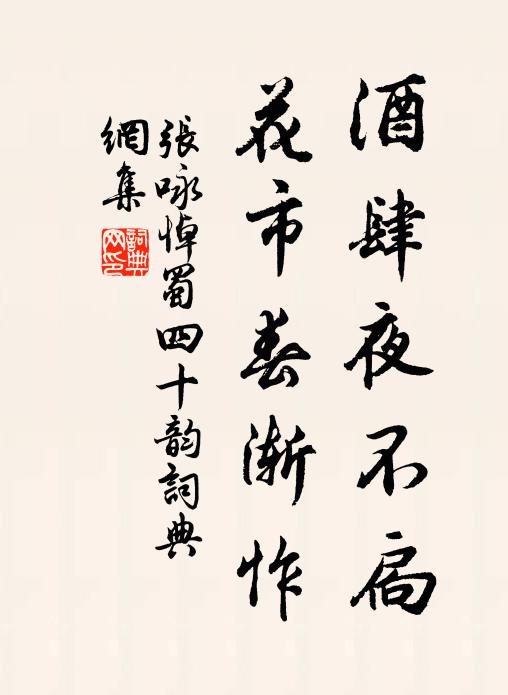 酒肆夜不扃
花市春漸怍
張咏悼蜀四十韵詞典
網集
詞典網印